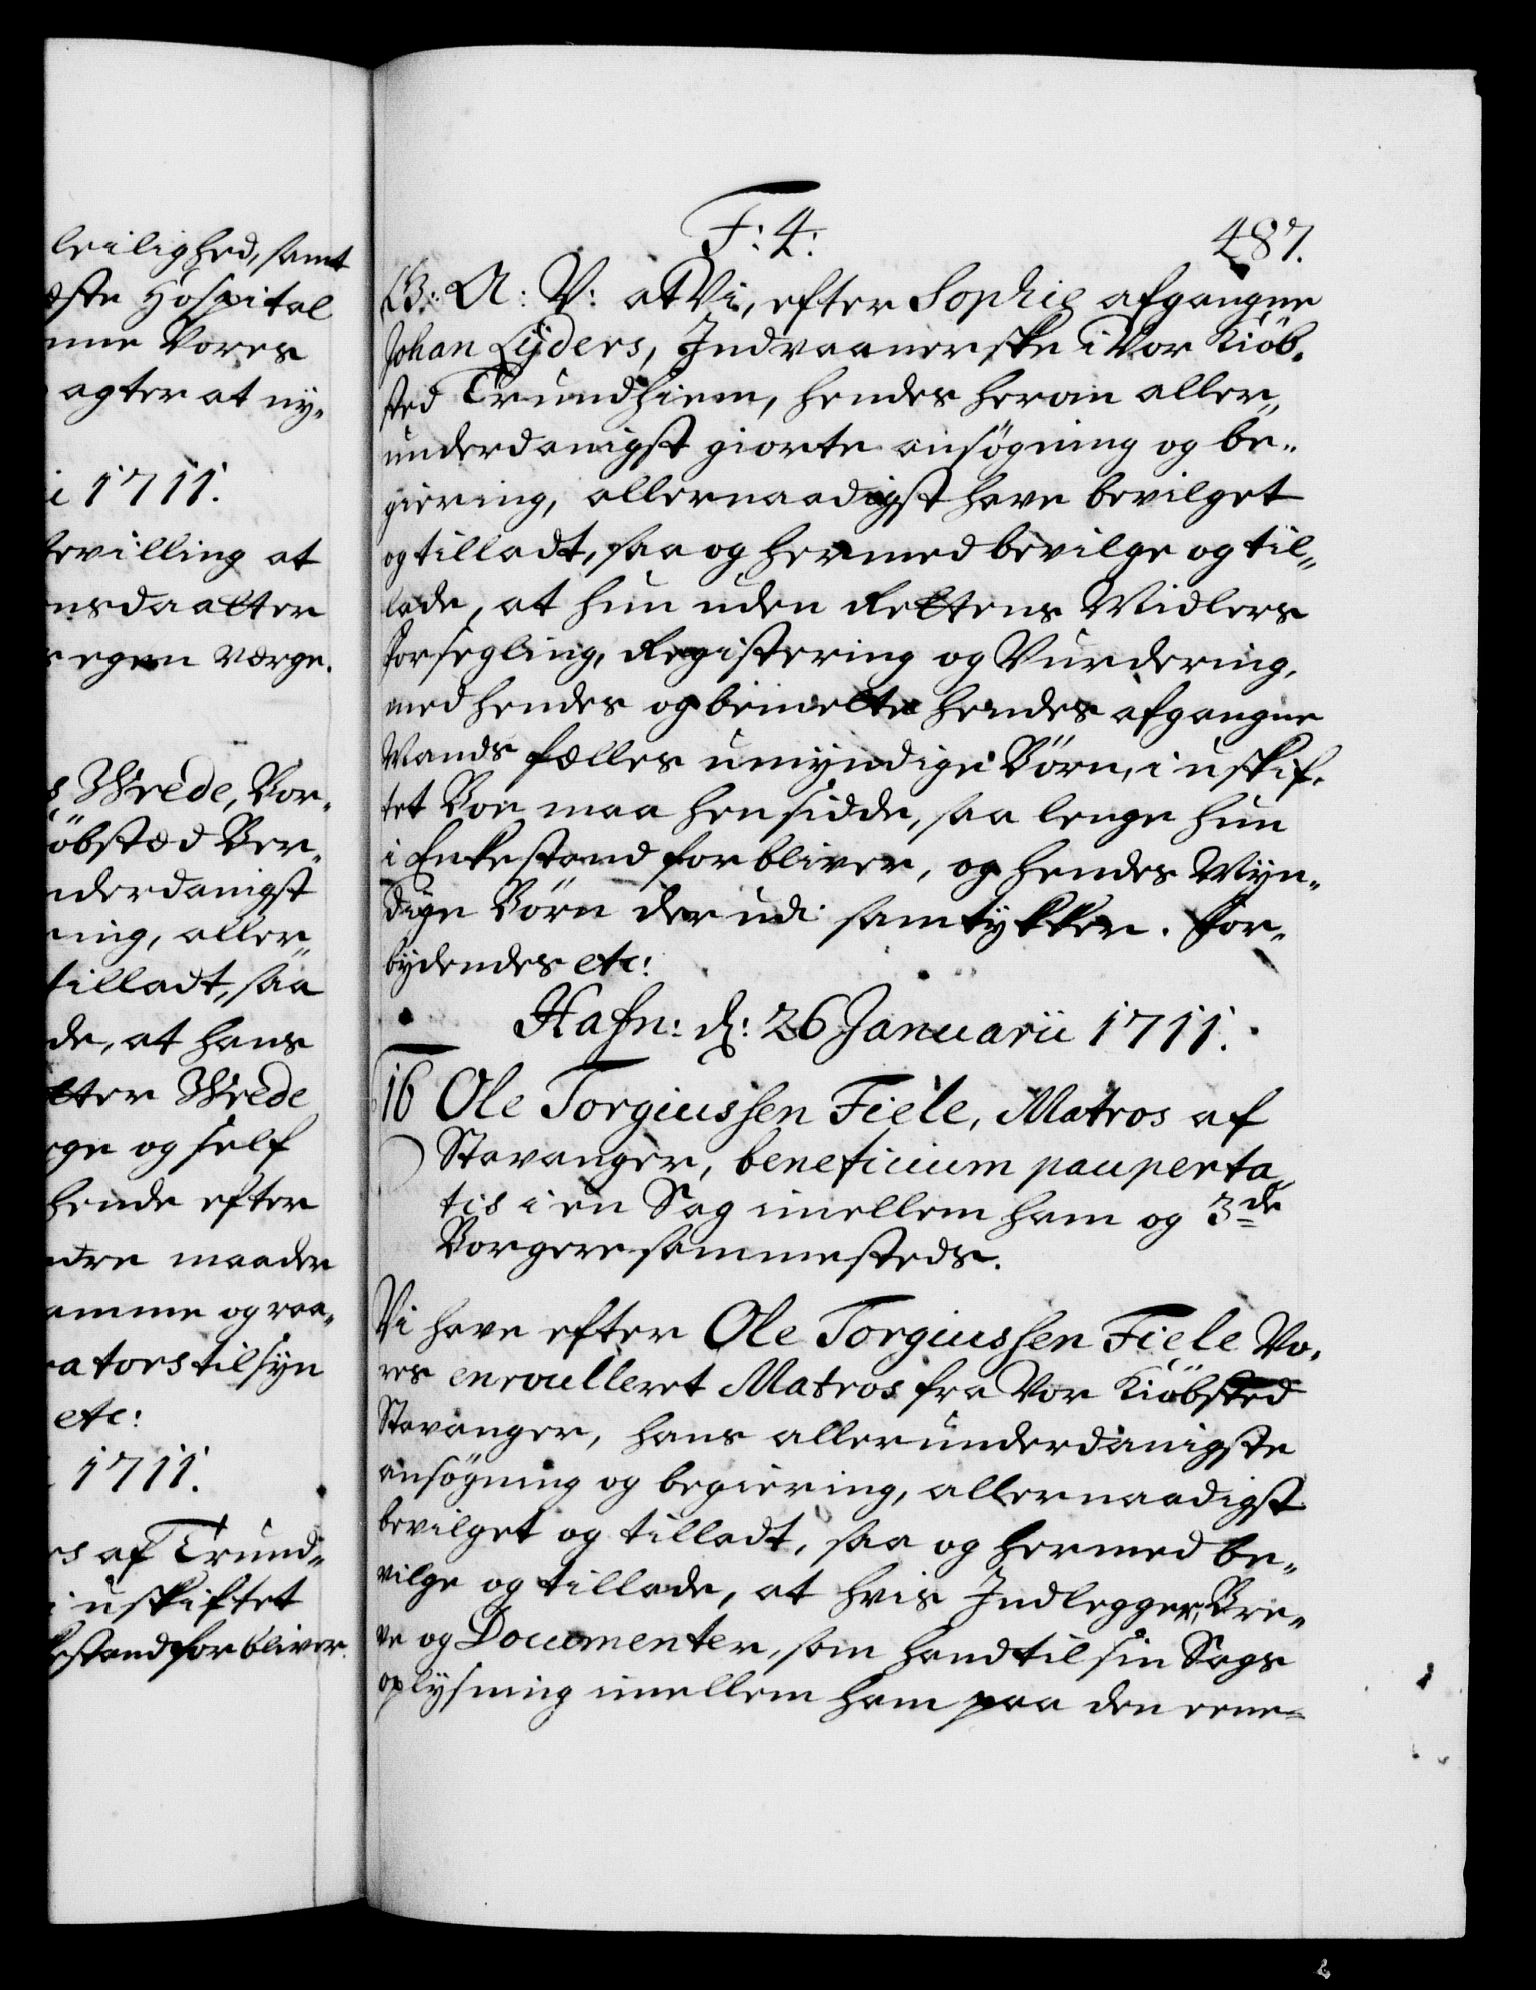 leilighed, samt
Hospital
Vores
agter at ny„
i 1711.
bevilling at
ensdaatter
egen værge.
Wrede, Bor„
iöbstæd Ber„
underdanigst
ing, aller„
tilladt, saa
de, at hans
atter Wrede
rge og self
hende efter
andre maader
samme og raa„
rators tilsyn
etc:
1711.
rs af Trund„
i uskiftet
kestand forbliver.
F: 4:
487.
G: A: V: at Vi, efter Sophie afgangne
Johan Lÿders, Indvaanerske i Vor Kiöb„
sted Trundhiem, hendes herom aller„
underdanigst giorte ansögning og be„
giering, allernaadigst have bevilget
og tilladt, saa og hermed bevilge og til„
lade, at hun uden Rettens Midlers
Forsegling, Registering og Vurdering,
med hendes og bemelte hendes afgangne
Mands fælles umyndige Börn, i uskif„
tet Boe maa hensidde, saa lenge hun
i Enkestand forbliver, og hendes Myn„
dige Börn der udi samtykker. For„
bydendes etc:
Hafn: d: 26 Januarii 1711.
16 Ole Torgiussen Fiele, Matros af
Stavanger, beneficium pauperta„
tis i en Sag imellem ham og 3de
Borgere sammesteds.
Vi have efter Ole Torgiussen Fiele Vo„
res enroulleret Matros fra Vor Kiöbsted
Stavanger, hans allerunderdanigste
ansögning og begiering, allernaadigst
bevilget og tilladt, saa og hermed be„
vilge og tillade, at hvis Indlegger, Bre„
ve og Documenter, som hand til sin Sags
oplysning imellem ham paa den eene„